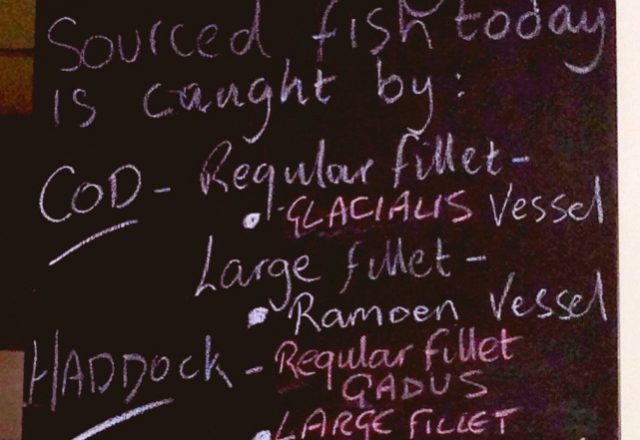 Sourced fish today
is caught by:
COD - Regular fillet -
• GLACIALIS Vessel
Large fillet -
• Ramoen Vessel
HADDOCK - Regular fillet
GADUS
• LARGE FILLET